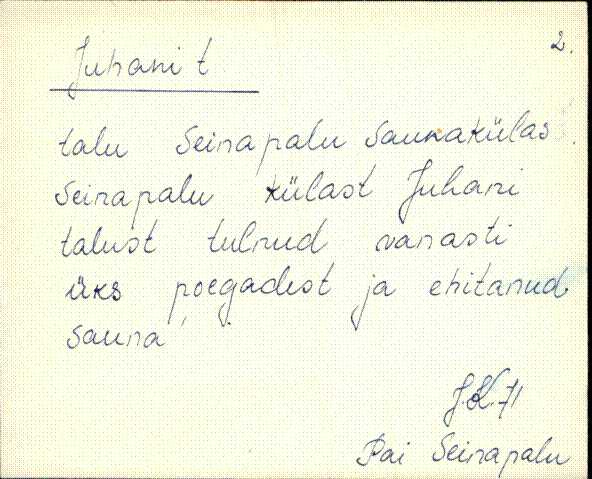 2.
Juhani t
talu Seinapalu Saunakülas.
Seinapalu külast Juhani
talust tulnud vanasti
üks poegadest ja ehitanud
sauna.
J.K. 71
Pai Seinapalu